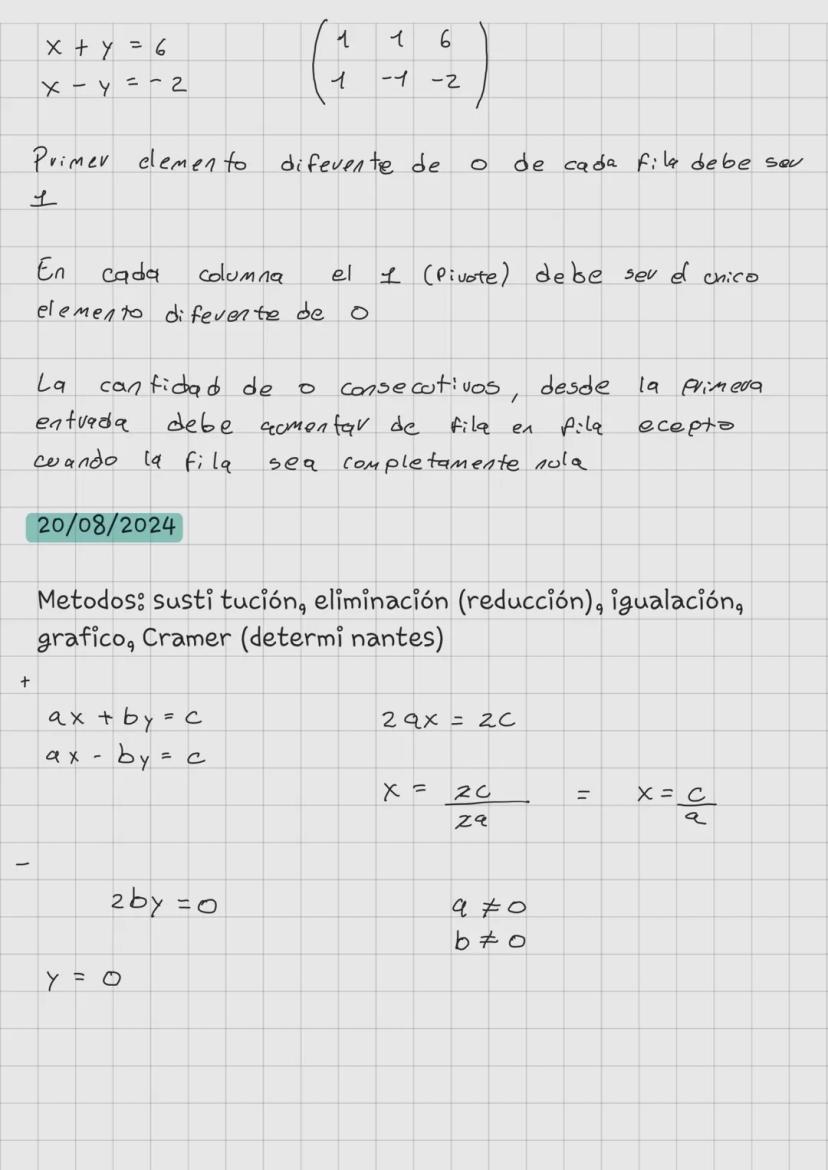 x + y = 6
x - y = -2
( 1 1 6
1 -1 -2 )
Primer elemento difevente de 0 de cada fila debe ser
1
En cada columna el 1 (Pivote) debe ser el unico
elemento difevente de 0
La cantidad de 0 consecutivos, desde la primera
entrada debe aumentar de fila en fila ecepto
cuando la fila sea completamente nula
20/08/2024
Metodos: susti tución, eliminación (reducción), igualación,
grafico, Cramer (determi nantes)
+
ax + by = c
ax - by = c
2ax = 2c
x = 2c/2a = x = c/a
-
2by = 0
a ≠ 0
b ≠ 0
y = 0